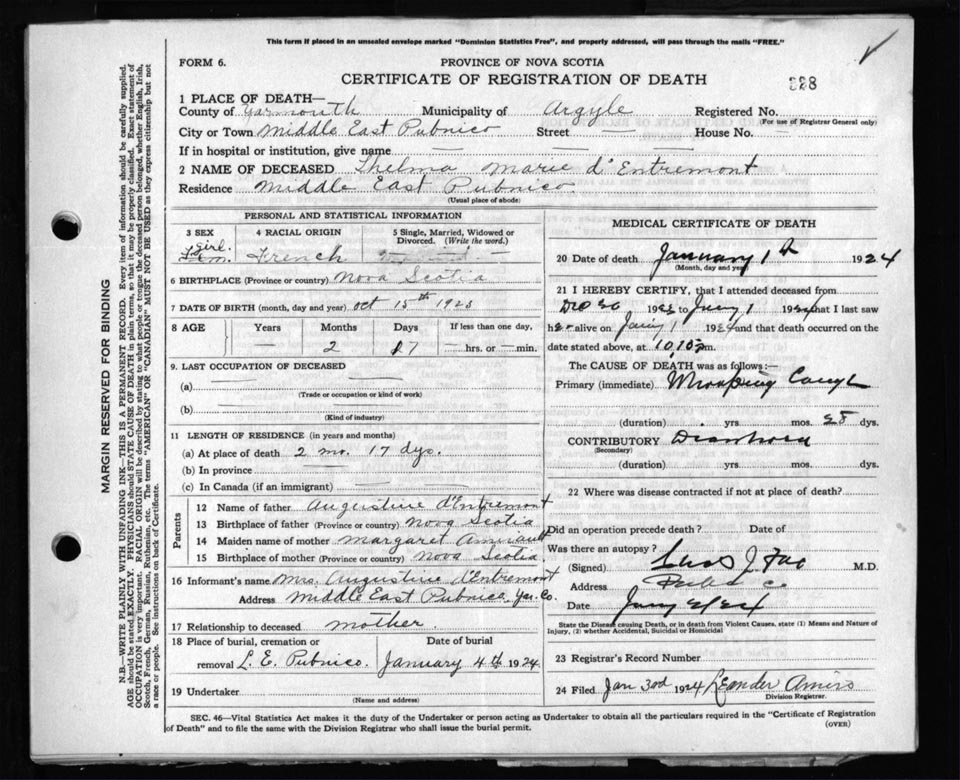 This form if placed in an unsealed envelope marked "Dominion Statistics Free", and properly addressed, will pass through the mails "FREE."
FORM 6.
PROVINCE OF NOVA SCOTIA
CERTIFICATE OF REGISTRATION OF DEATH
328
1 PLACE OF DEATH—
County of Yarmouth Municipality of Argyle Registered No.
(For use of Registrar General only)
City or Town Middle East Pubnico Street — House No. —
If in hospital or institution, give name — — —
2 NAME OF DECEASED Thelma Marie d'Entremont
Residence Middle East Pubnico
(Usual place of abode)
PERSONAL AND STATISTICAL INFORMATION
3 SEX 4 RACIAL ORIGIN 5 Single, Married, Widowed or Divorced. (Write the word.)
girl. French
6 BIRTHPLACE (Province or country) Nova Scotia
7 DATE OF BIRTH (month, day and year) Oct 15th 1923
8 AGE Years Months Days If less than one day,
— 2 17 — hrs. or — min.
9. LAST OCCUPATION OF DECEASED
(a) —
(Trade or occupation or kind of work)
(b) —
(Kind of industry)
11 LENGTH OF RESIDENCE (in years and months)
(a) At place of death 2 mo. 17 dys.
(b) In province —
(c) In Canada (if an immigrant) —
Parents
12 Name of father Augustine d'Entremont
13 Birthplace of father (Province or country) Nova Scotia
14 Maiden name of mother Margaret Amirault
15 Birthplace of mother (Province or country) Nova Scotia.
16 Informant's name Mrs. Augustine d'Entremont
Address Middle East Pubnico, Yar. Co.
17 Relationship to deceased mother.
18 Place of burial, cremation or removal L. E. Pubnico. Date of burial January 4th 1924.
19 Undertaker
(Name and address)
MEDICAL CERTIFICATE OF DEATH
20 Date of death January 1st 1924
(Month, day and year)
21 I HEREBY CERTIFY, that I attended deceased from
192 to Jany 1 1924 that I last saw
her alive on Jany 1 1924 and that death occurred on the
date stated above, at 10.10 p.m.
The CAUSE OF DEATH was as follows:—
Primary (immediate) Whooping Cough
(duration) yrs. mos. 28 dys.
CONTRIBUTORY Diarrhoea
(Secondary)
(duration) yrs. mos. dys.
22 Where was disease contracted if not at place of death?
Did an operation precede death? Date of
Was there an autopsy?
(Signed) M.D.
Address
Date Jany
State the Disease causing Death, or in death from Violent Causes, state (1) Means and Nature of
Injury, (2) whether Accidental, Suicidal or Homicidal
23 Registrar's Record Number
24 Filed Jan 3rd 1924 Leander Amiro
Division Registrar.
SEC. 46—Vital Statistics Act makes it the duty of the Undertaker or person acting as Undertaker to obtain all the particulars required in the "Certificate of Registration
of Death" and to file the same with the Division Registrar who shall issue the burial permit.
(OVER)
MARGIN RESERVED FOR BINDING
N.B.—WRITE PLAINLY WITH UNFADING INK—THIS IS A PERMANENT RECORD. Every item of information should be carefully supplied.
AGE should be stated EXACTLY. PHYSICIANS should STATE CAUSE OF DEATH in plain terms, so that it may be properly classified. Exact statement of
OCCUPATION is very important. RACIAL ORIGIN will be described by stating to what people or tongue the deceased person belonged, whether English, Irish,
Scotch, French, German, Russian, Ruthenian, etc. The terms "AMERICAN" OR "CANADIAN" MUST NOT BE USED as they express citizenship but not
a race or people. See instructions on back of Certificate.